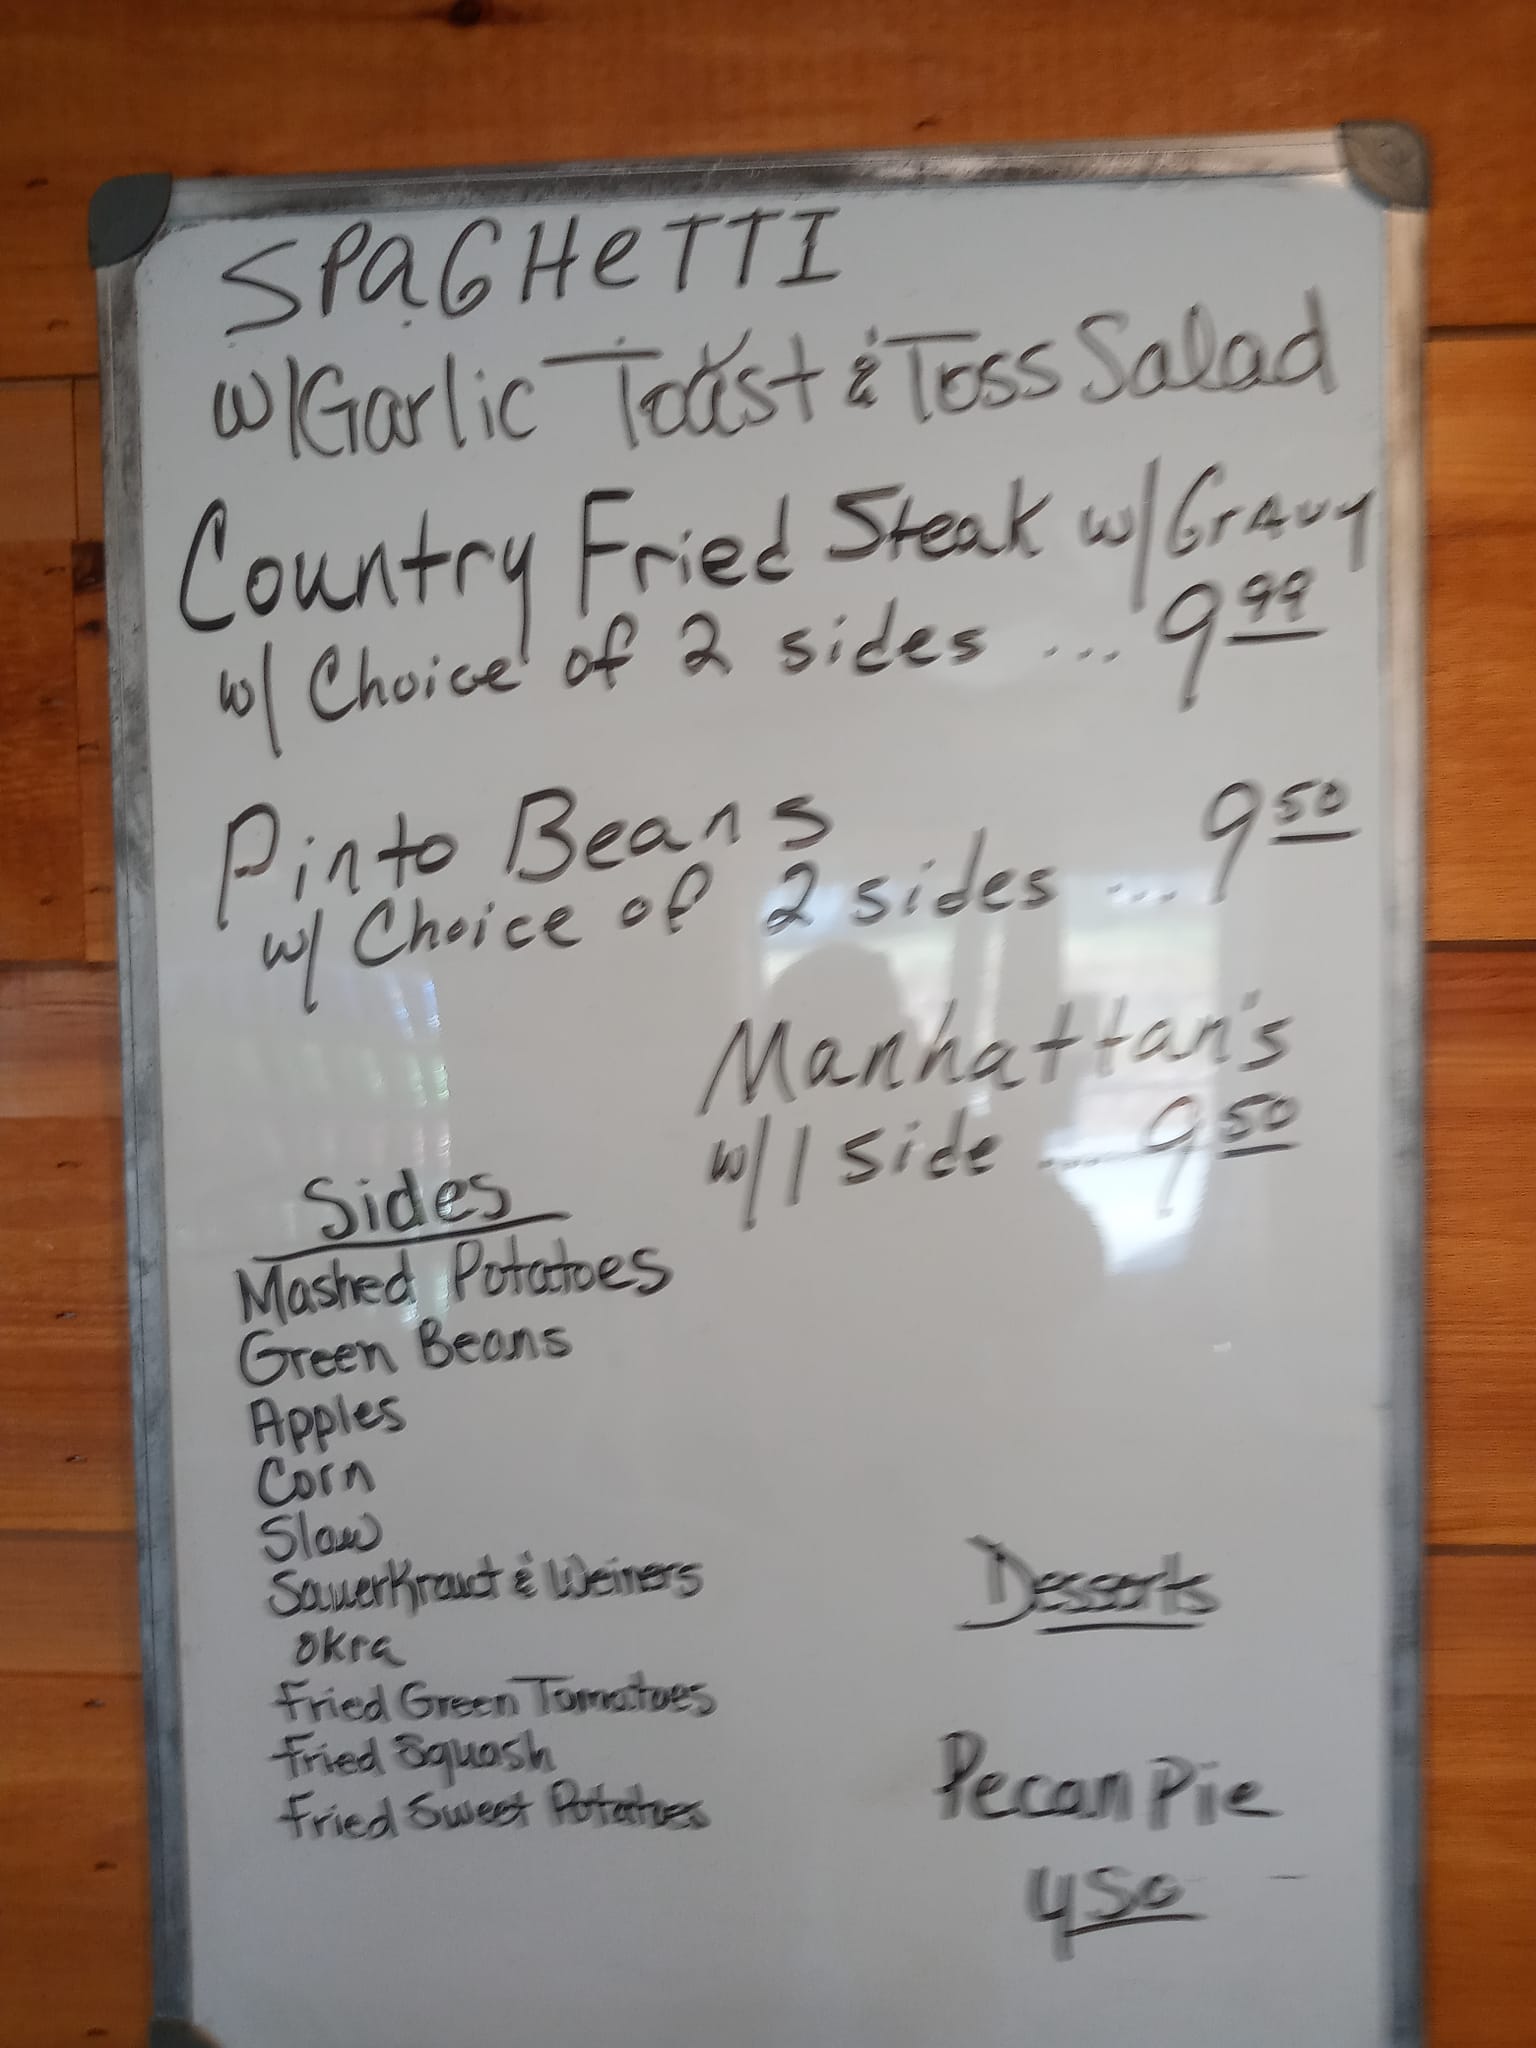 SPaGHeTTI
w/Garlic Toast & Toss Salad
Country Fried Steak w/Gravy
w/ Choice of 2 sides ... 9 99
Pinto Beans 9 50
w/ Choice of 2 sides ...
Manhattan's
w/1 side ..... 9 50
Sides
Mashed Potatoes
Green Beans
Apples
Corn
Slaw
SauerKraut & Weiners
Okra
Fried Green Tomatoes
Fried Squash
Fried Sweet Potatoes
Desserts
Pecan Pie
4 50